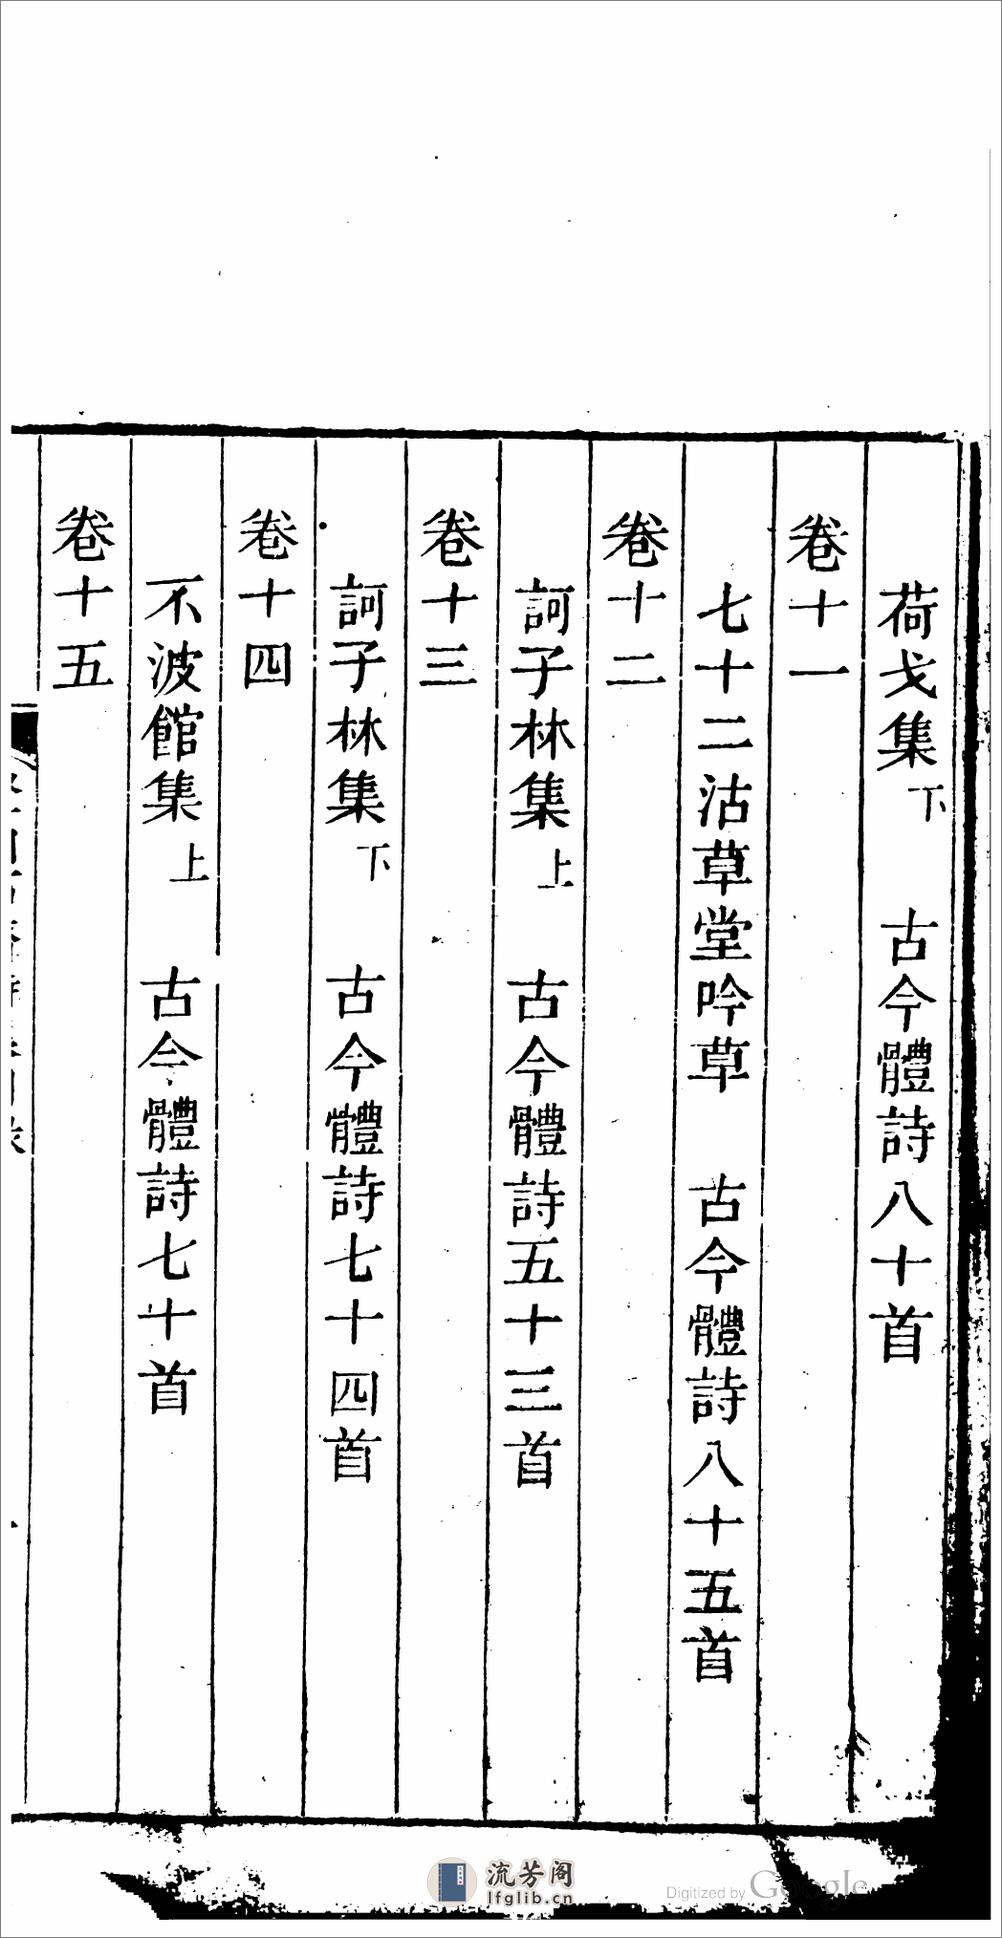 荷戈集下 古今體詩八十首
卷十一
七十二沽草堂吟草 古今體詩八十五首
卷十二
訶子林集上 古今體詩五十三首
卷十三
訶子林集下 古今體詩七十四首
卷十四
不波館集上 古今體詩七十首
卷十五
流芳阁
lfglib.cn
Digitized by Google